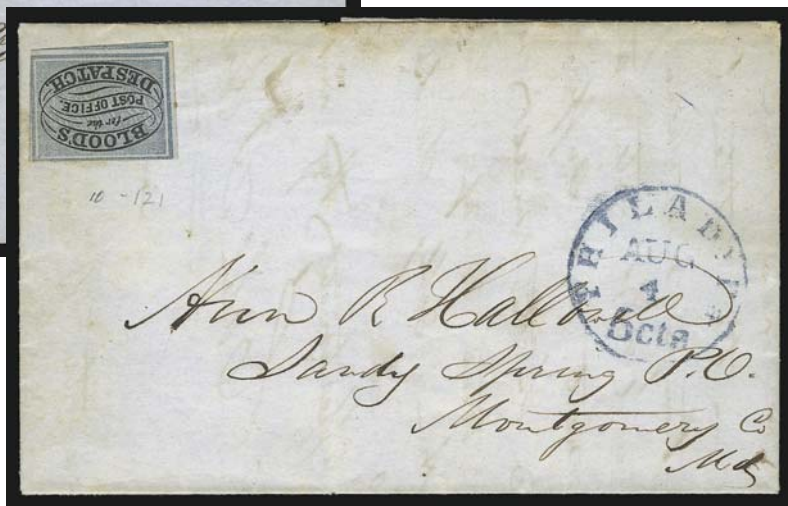 BLOOD'S
for the
POST OFFICE.
DESPATCH.
10 - 121
PHILADA
AUG
4
5cts
Ann R Hallowell
Sandy Spring P.O.
Montgomery Co
Md